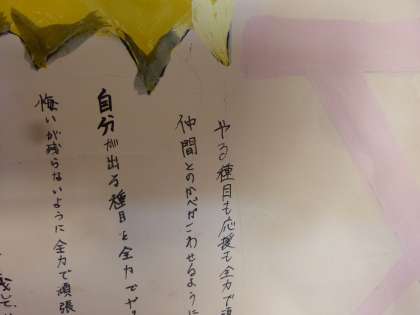 やる種目も応援も全力で頑
仲間とのかべがこわせるように
自分が出る種目を全力でや
悔いが残らないように全力で頑張